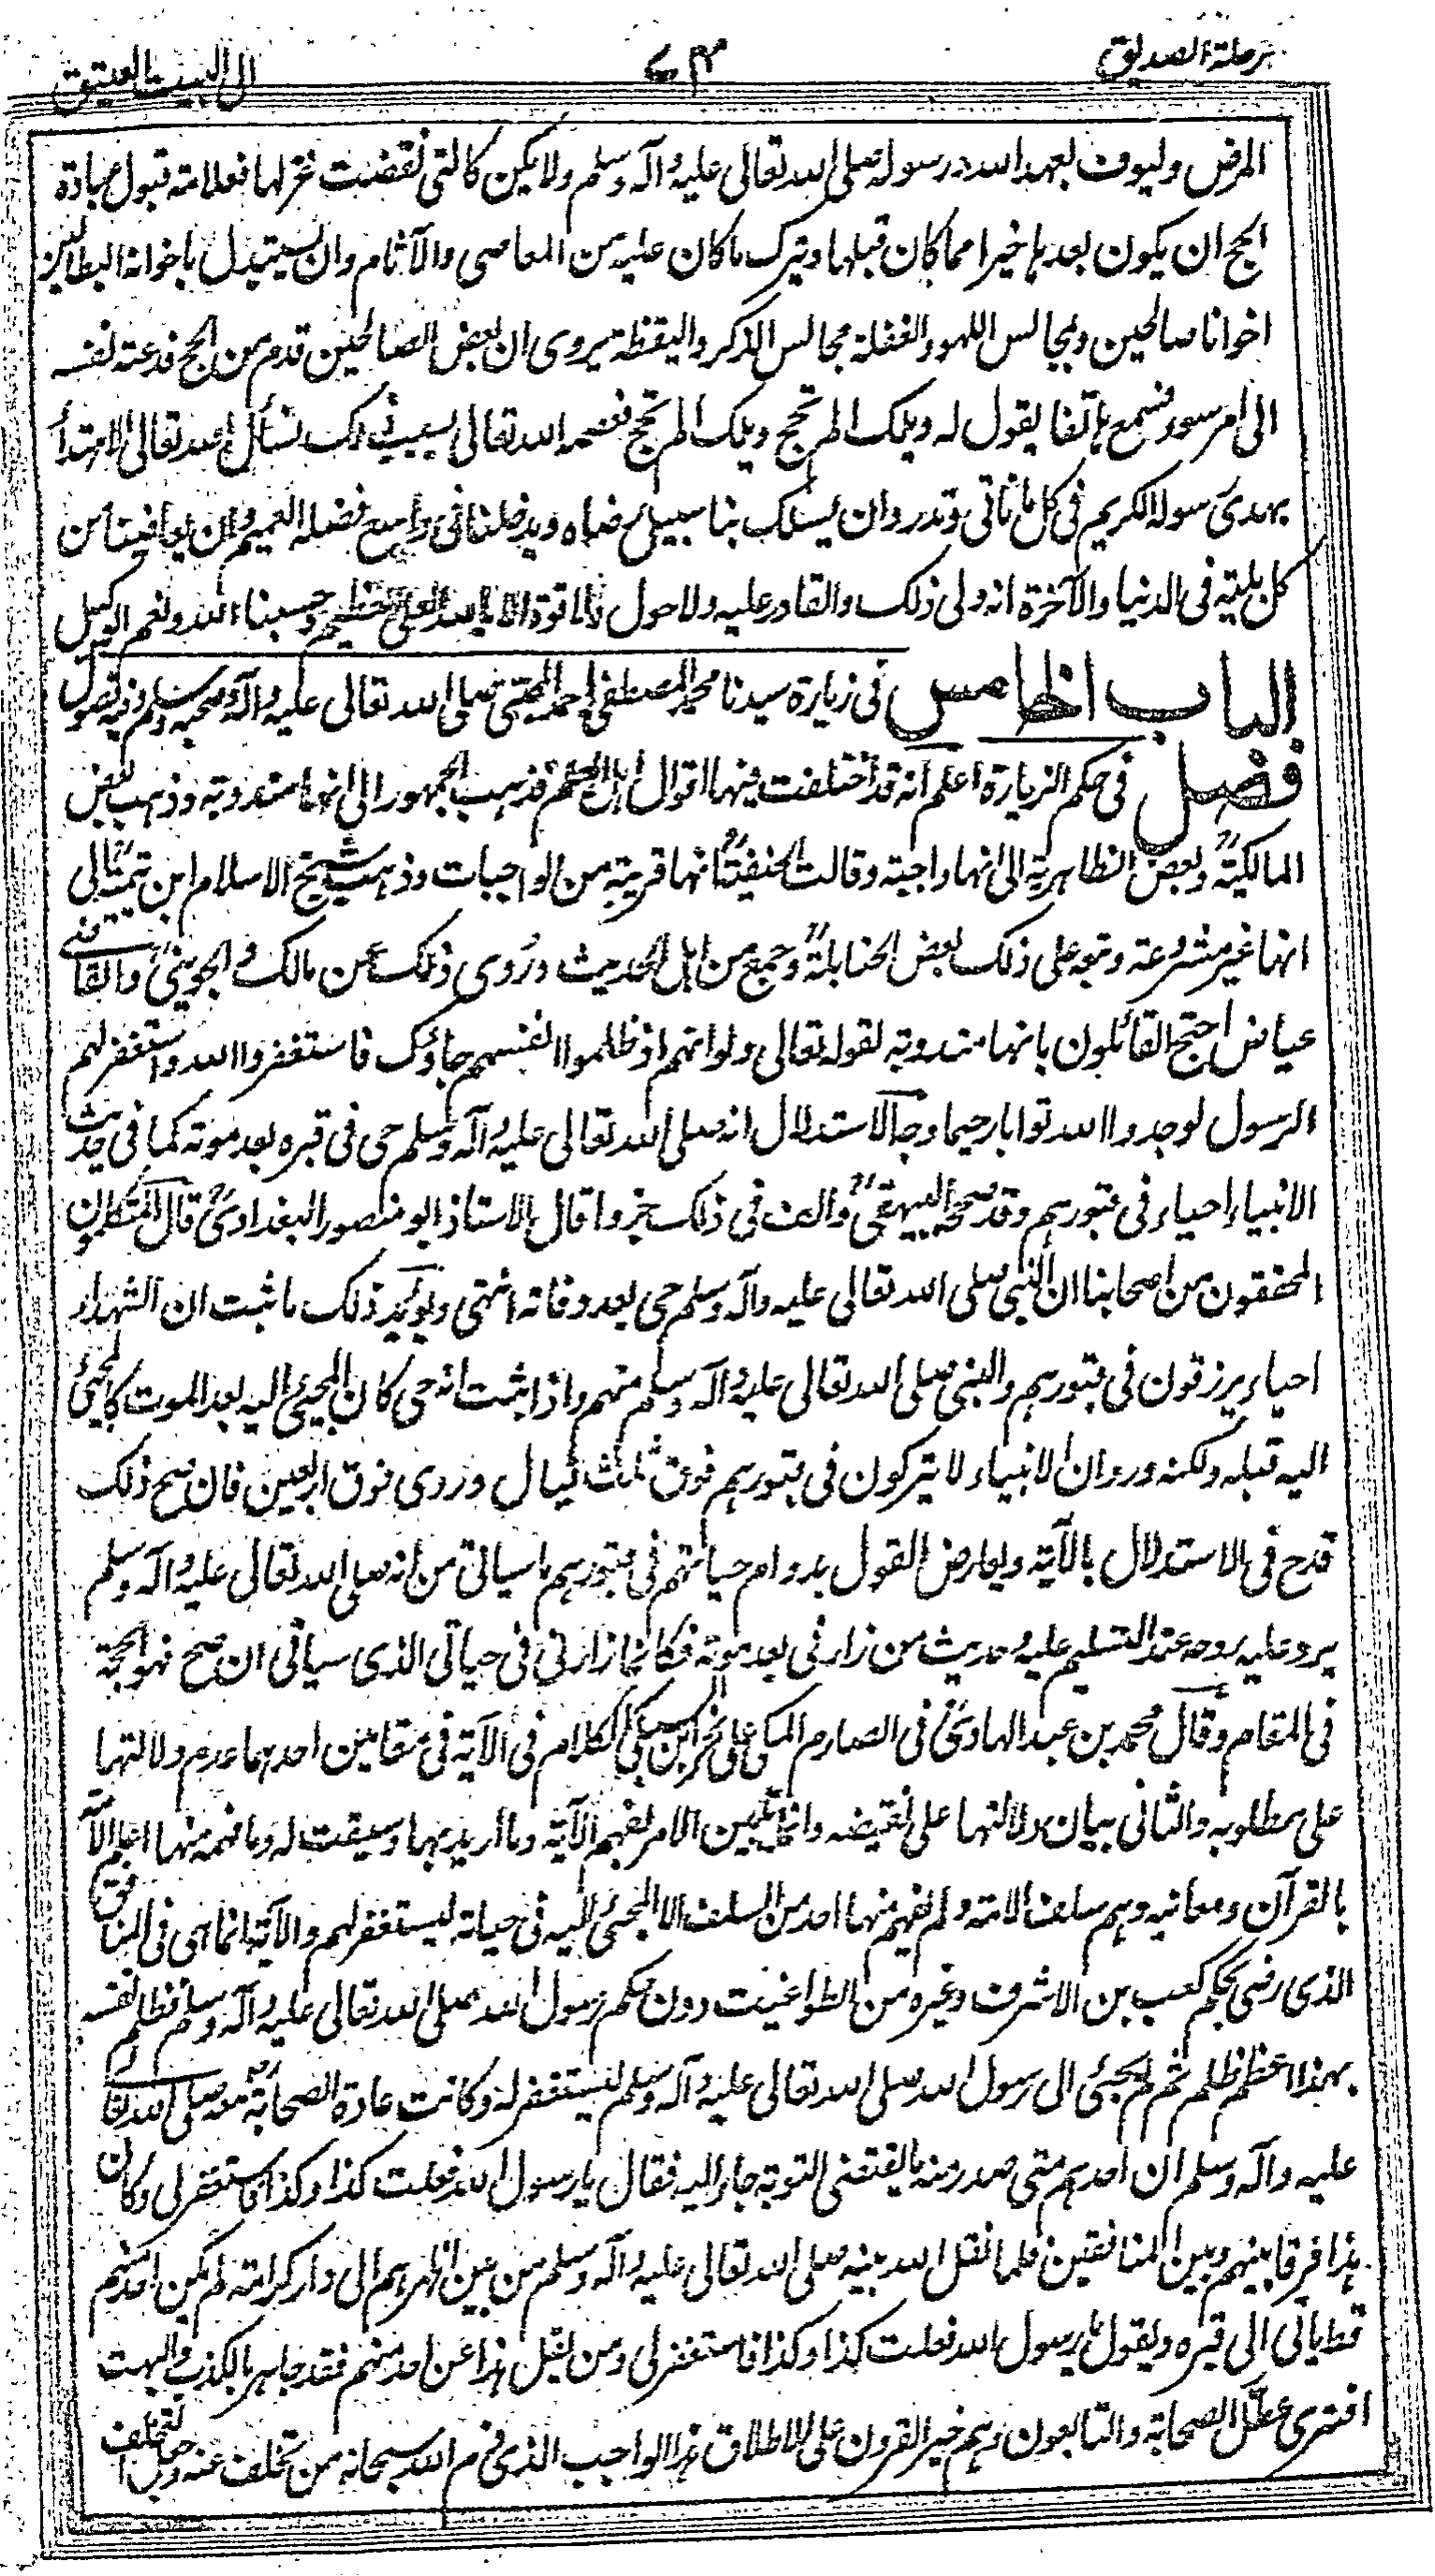 رحلة الصديق
٧٤
الى البيت العتيق
المرض وليوف بعهد الله ورسوله صلى الله تعالى عليه وآله وسلم ولا يكن كالتي نقضت غزلها فعلامة قبول عبادة
الحج ان يكون بعدها خيرا مما كان قبلها ويترك ما كان عليه من المعاصي والآثام وان يستبدل باخوانه البطالين
اخوانا صالحين وبمجالس اللهو والغفلة مجالس الذكر واليقظة يروى ان بعض الصالحين قدم من الحج فدعته نفسه
الى امر سوء فسمع هاتفا يقول له ويلك الم تحج ويلك الم تحج فعصمه الله تعالى بسبب ذلك نسأل الله تعالى الاهتداء
بهدي رسوله الكريم في كل ما نأتي ونذر وان يسلك بنا سبيل رضاه ويدخلنا في واسع فضله العميم وان يعافينا من
كل بلية في الدنيا والآخرة انه ولي ذلك والقادر عليه ولا حول ولا قوة الا بالله العلي العظيم وحسبنا الله ونعم الوكيل
الباب الخامس في زيارة سيدنا محمد المصطفى احمد المجتبى صلى الله تعالى عليه وآله وصحبه وسلم وفيه فصول
فصل في حكم الزيارة اعلم انه قد اختلفت فيها اقوال اهل العلم فذهب الجمهور الى انها مندوبة وذهب بعض
المالكية وبعض الظاهرية الى انها واجبة وقالت الحنفية انها قريبة من الواجبات وذهب شيخ الاسلام ابن تيمية الى
انها غير مشروعة وتبعه على ذلك بعض الحنابلة وجمع من اهل الحديث وروي ذلك عن مالك والجويني والقاضي
عياض احتج القائلون بانها مندوبة لقوله تعالى ولو انهم اذ ظلموا انفسهم جاؤك فاستغفروا الله واستغفر لهم
الرسول لوجدوا الله توابا رحيما وجه الاستدلال انه صلى الله تعالى عليه وآله وسلم حي في قبره بعد موته كما في حديث
الانبياء احياء في قبورهم وقد صححه البيهقي والف في ذلك جزوا قال الاستاذ ابو منصور البغدادي قال المتكلمون
المحققون من اصحابنا ان النبي صلى الله تعالى عليه وآله وسلم حي بعد وفاته انتهى ويؤيد ذلك ما ثبت ان الشهداء
احياء يرزقون في قبورهم والنبي صلى الله تعالى عليه وآله وسلم منهم واذا ثبت انه حي كان المجيئ اليه بعد الموت كالمجيئ
اليه قبله ولكنه ورد ان الانبياء لا يتركون في قبورهم فوق ثلث ليال وروي فوق اربعين فان صح ذلك
قدح في الاستدلال بالآية ويعارض القول بدوام حياتهم في قبورهم ما سيأتي من انه صلى الله تعالى عليه وآله وسلم
يرد عليه روحه عند التسليم عليه وحديث من زارني بعد موتي فكانما زارني في حياتي الذي سيأتي ان صح فهو الحجة
في المقام وقال محمد بن عبد الهادي في الصارم المنكي على نحر ابن السبكي الكلام في الآية في مقامين احدهما عدم دلالتها
على مطلوبه والثاني بيان دلالتها على نقيضه وانما يتبين الامر بفهم الآية وما اريد بها وسيقت له وما فهمه منها اعلم الامة
بالقرآن ومعانيه وهم سلف الامة ولم يفهم منها احد من السلف الا المجيئ اليه في حياته ليستغفر لهم والآية انما هي في المنافق
الذي رضي بحكم كعب بن الاشرف وغيره من الطواغيت دون حكم رسول الله صلى الله تعالى عليه وآله وسلم فظلم نفسه
بهذا اعظم ظلم ثم لم يجئ الى رسول الله صلى الله تعالى عليه وآله وسلم ليستغفر له وكانت عادة الصحابة معه صلى الله تعالى
عليه وآله وسلم ان احدهم متى صدر منه ما يقتضي التوبة جاء اليه فقال يا رسول الله فعلت كذا وكذا فاستغفر لي وكان
هذا فرقا بينهم وبين المنافقين فلما نقل الله نبيه صلى الله تعالى عليه وآله وسلم من بين اظهرهم الى دار كرامته لم يكن احد منهم
قط يأتي الى قبره ويقول يا رسول الله فعلت كذا وكذا فاستغفر لي ومن نقل هذا عن احد منهم فقد جاهر بالكذب والبهت
افترى عطل الصحابة والتابعون وهم خير القرون على الاطلاق هذا الواجب الذي ذم الله سبحانه من تخلف عنه وجعل التخلف